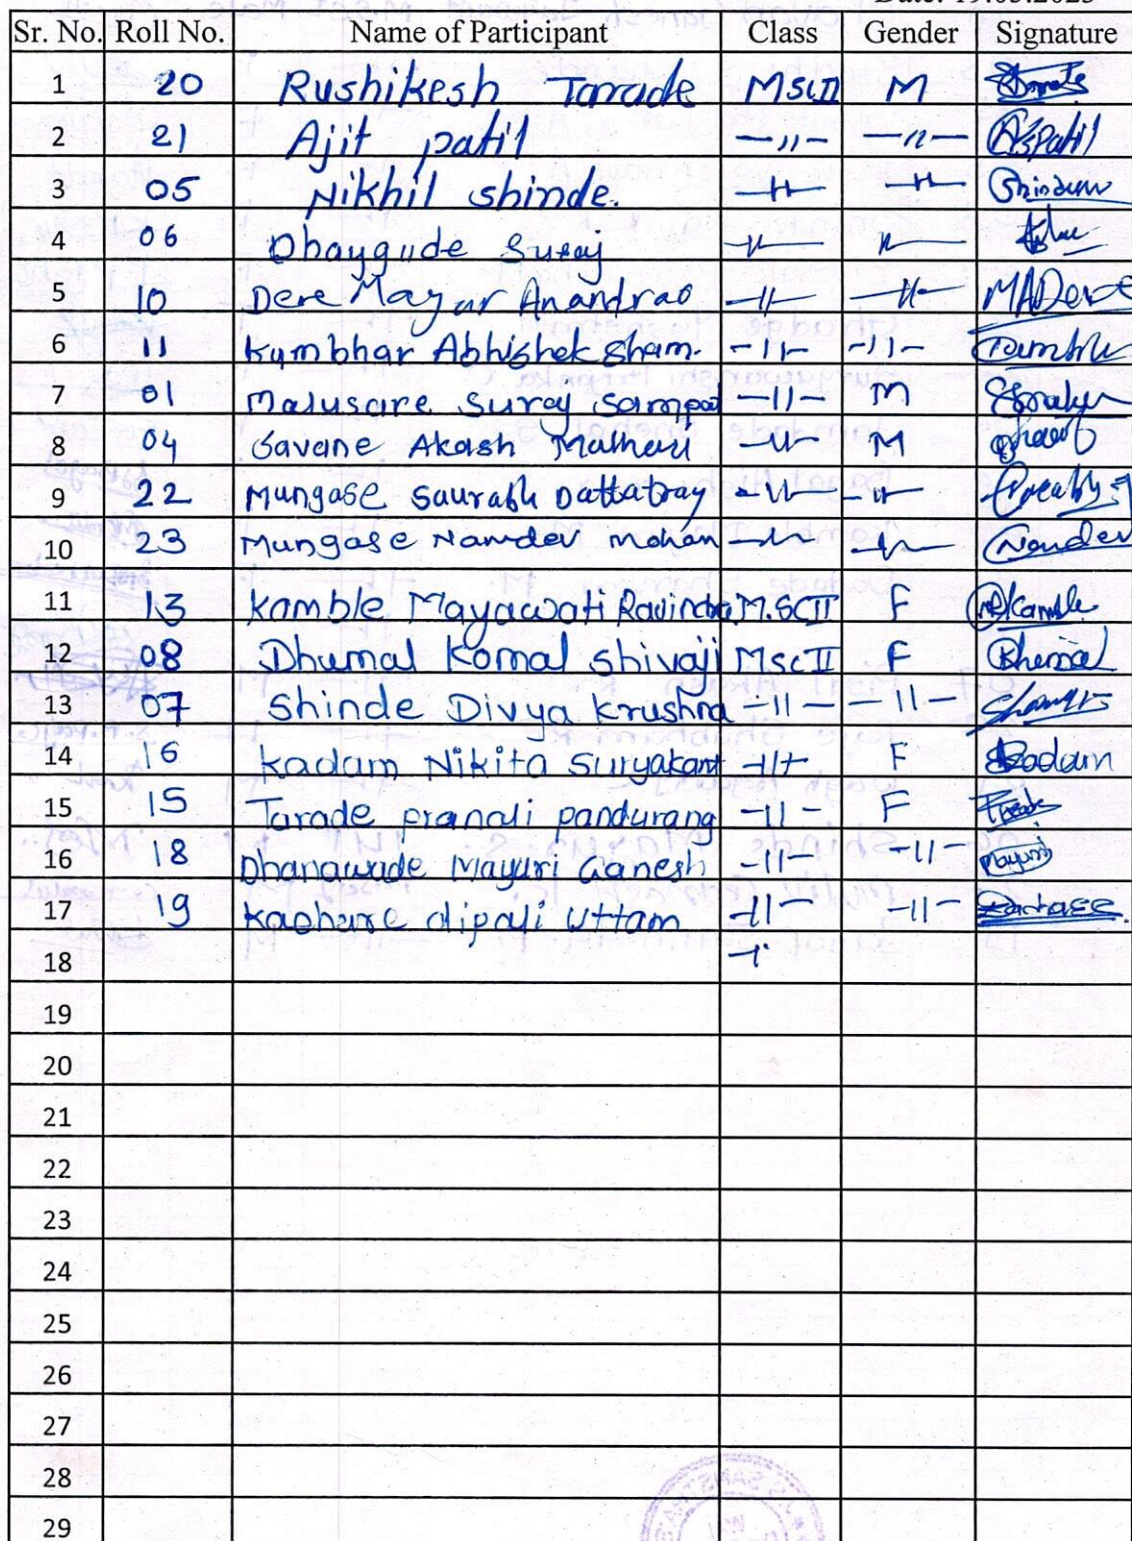 Sr. No. Roll No. Name of Participant Class Gender Signature
1 20 Rushikesh Tarade MscII M
2 21 Ajit patil —〃— —〃— ASpatil
3 05 Nikhil shinde. —〃— —〃— Shinde
4 06 Dhaygude Suraj —〃— —〃—
5 10 Dere Mayur Anandrao —〃— —〃— MADere
6 11 Kumbhar Abhishek Sham. —〃— —〃—
7 01 Malusare Suraj Sampat —〃— M
8 04 Savane Akash Malhari —〃— M
9 22 Mungase Saurabh Dattatray —〃— —〃—
10 23 Mungase Namdev Mohan —〃— —〃— Namdev
11 13 Kamble Mayawati Ravindra M.SCII F Kamble
12 08 Dhumal Komal Shivaji MscII F Dhumal
13 07 Shinde Divya Krushna —〃— —〃—
14 16 Kadam Nikita Suryakant —〃— F Kadam
15 15 Tarade pranali pandurang —〃— F
16 18 Dhanawade Mayuri Ganesh —〃— —〃— Mayuri
17 19 dipali Uttam —〃— —〃—
18
19
20
21
22
23
24
25
26
27
28
29